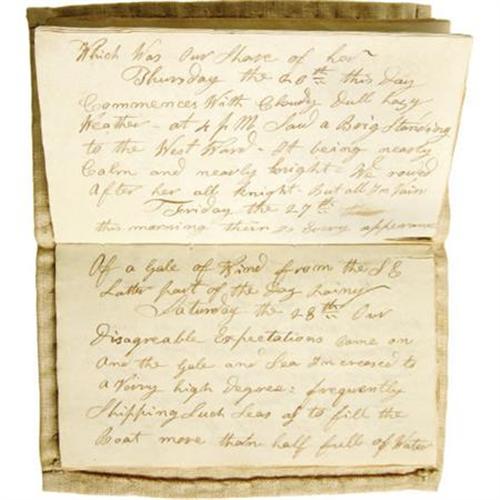 Which Was Our Share of her
Thursday the 20th this Day
Commences With Cloudy Dull hazy
Weather - at 4 P M Saw a Brig Standing
to the West Ward - It being nearly
Calm and nearly knight - We rowed
After her all Knight - But all In Vain
Friday the 27th
this morning their is Every appearance
Of a Gale of Wind from the S E
Latter part of the Day rainy
Saturday the 28th Our
Disagreable Expectations Came on
And the Gale and Sea Increased to
a Verry high Degree: frequently
Shipping Such Seas as to fill the
Boat more than half full of Water